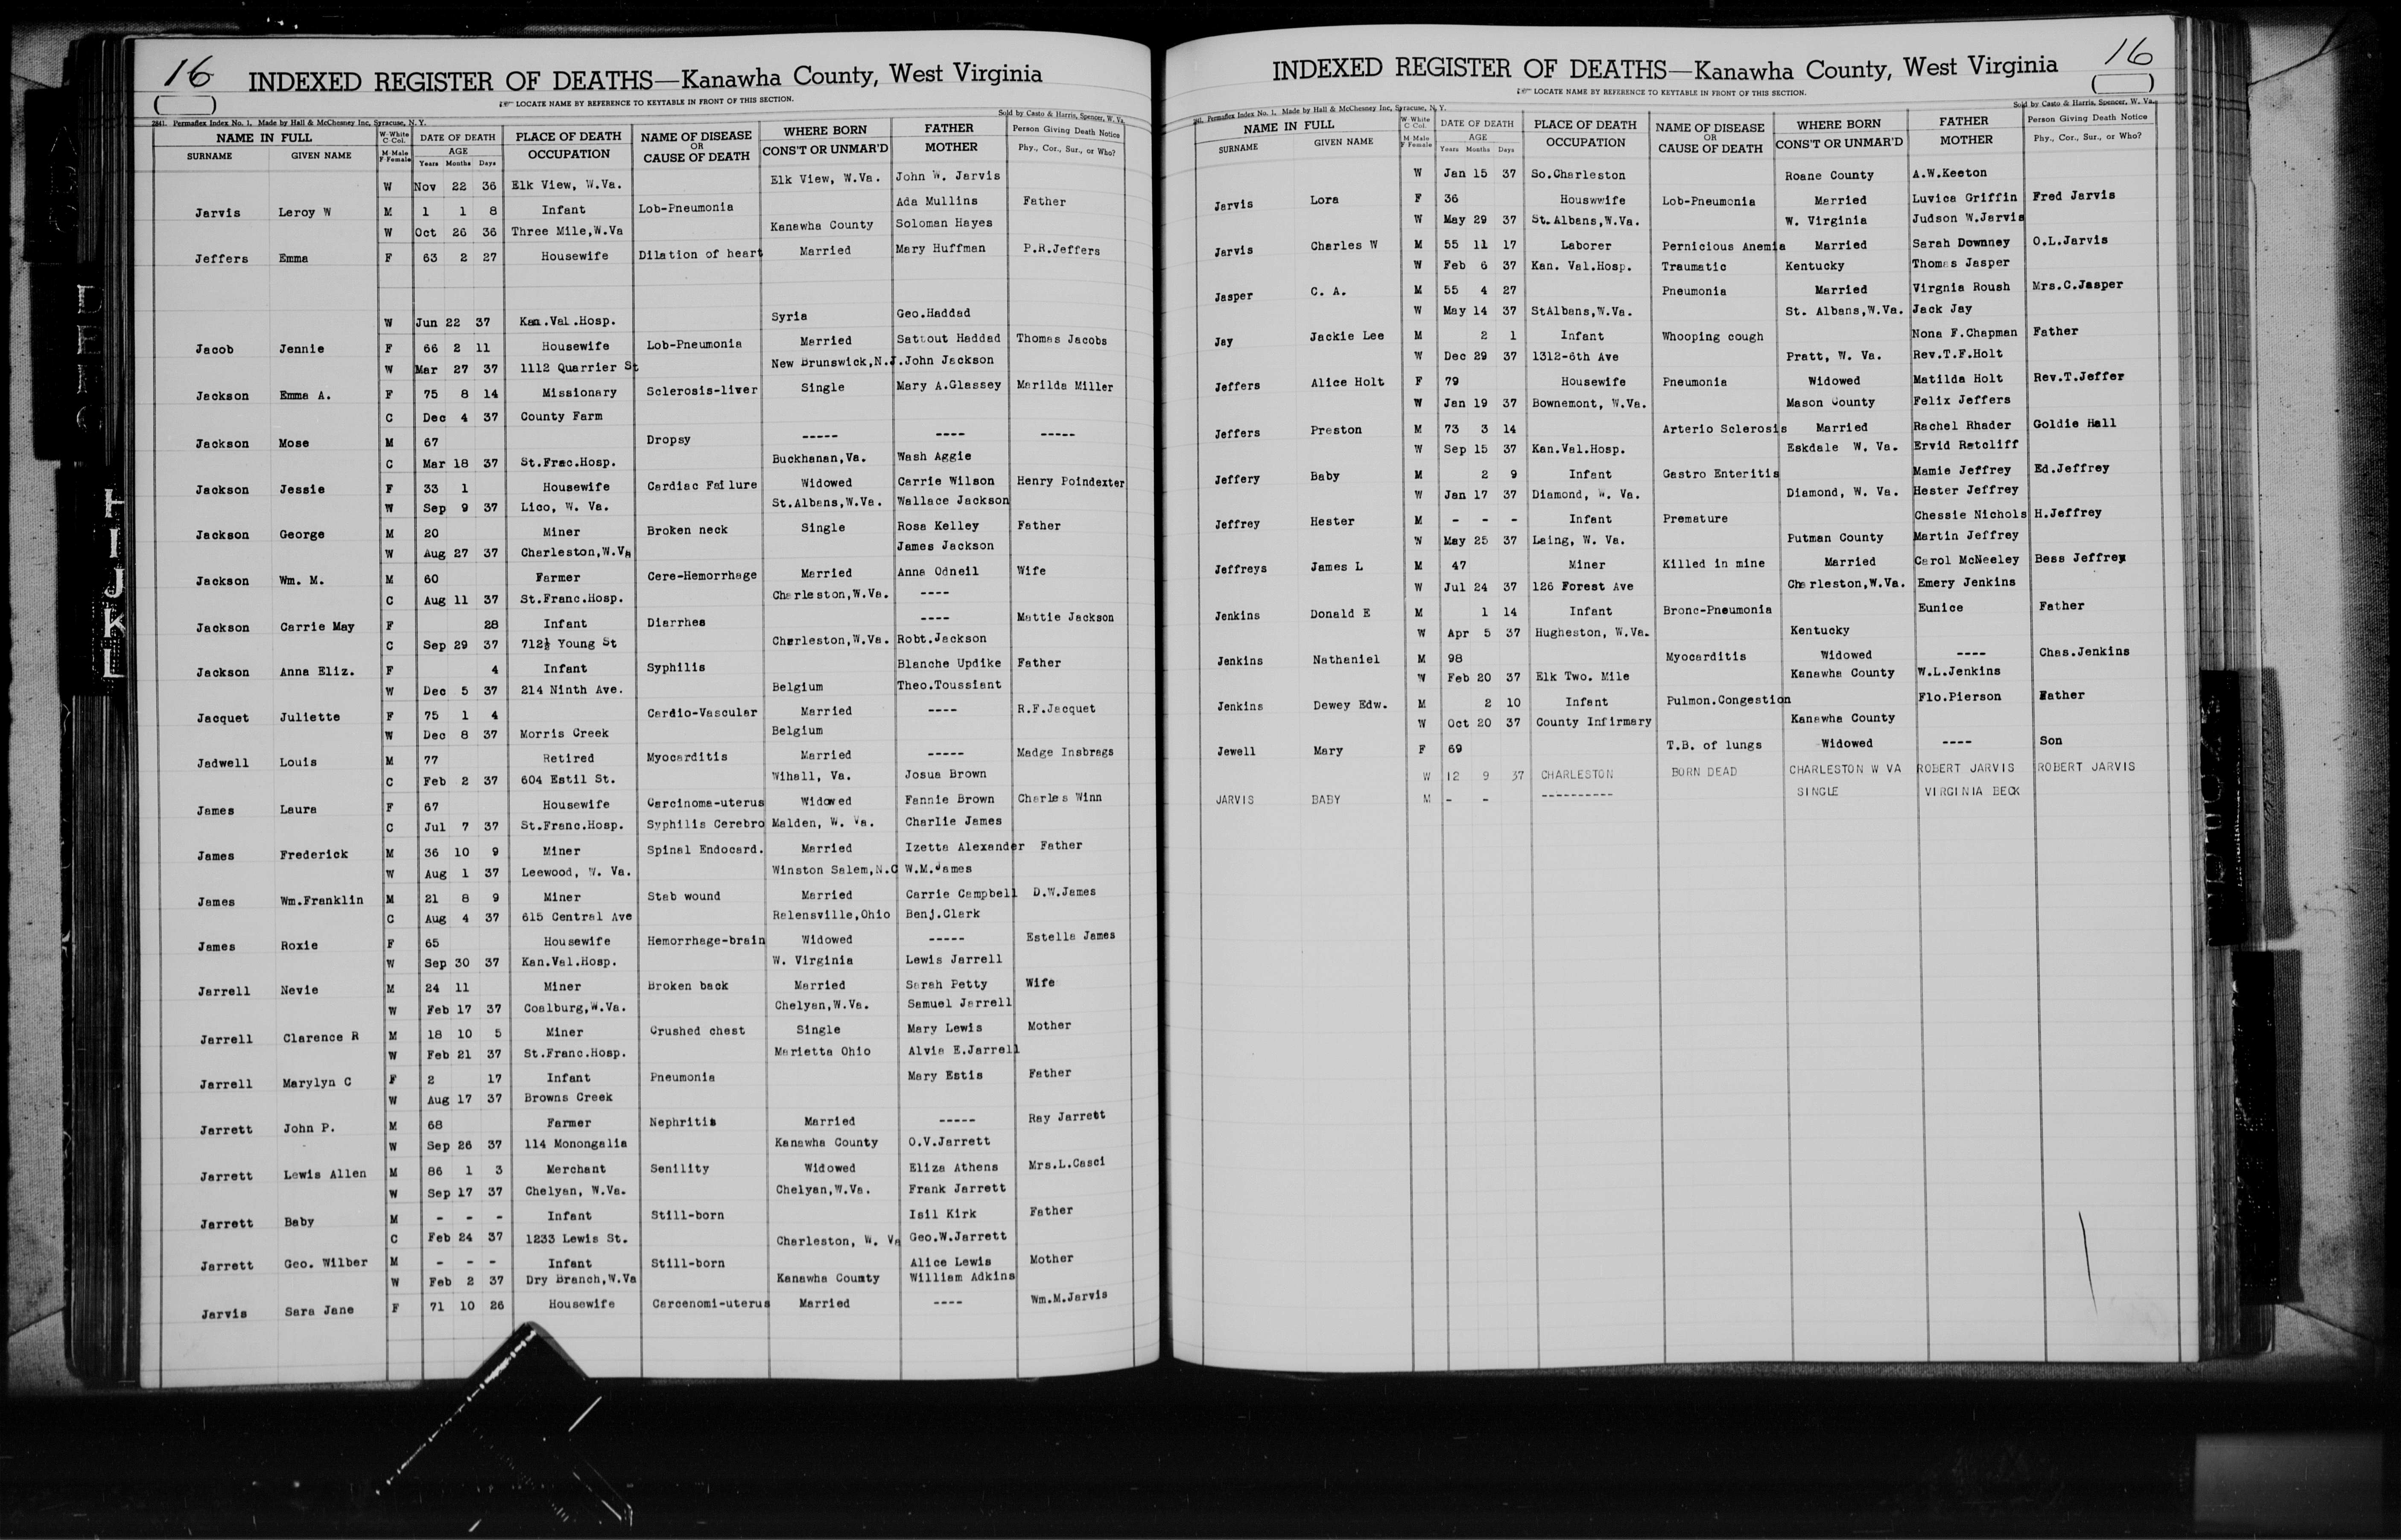 16
INDEXED REGISTER OF DEATHS—Kanawha County, West Virginia
( )
☞ LOCATE NAME BY REFERENCE TO KEYTABLE IN FRONT OF THIS SECTION.
2841. Permaflex Index No. 1, Made by Hall & McChesney Inc, Syracuse, N. Y. Sold by Casto & Harris, Spencer, W. Va.
NAME IN FULL W-White C-Col. DATE OF DEATH PLACE OF DEATH NAME OF DISEASE WHERE BORN FATHER Person Giving Death Notice
SURNAME GIVEN NAME M-Male F-Female AGE Years Months Days OCCUPATION OR CAUSE OF DEATH CONS'T OR UNMAR'D MOTHER Phy., Cor., Sur., or Who?
W Nov 22 36 Elk View, W.Va. Elk View, W.Va. John W. Jarvis
Jarvis Leroy W M 1 1 8 Infant Lob-Pneumonia Ada Mullins Father
W Oct 26 36 Three Mile,W.Va Kanawha County Soloman Hayes
Jeffers Emma F 63 2 27 Housewife Dilation of heart Married Mary Huffman P.R.Jeffers
W Jun 22 37 Kan.Val.Hosp. Syria Geo.Haddad
Jacob Jennie F 66 2 11 Housewife Lob-Pneumonia Married Sattout Haddad Thomas Jacobs
W Mar 27 37 1112 Quarrier St New Brunswick,N.J. John Jackson
Jackson Emma A. F 75 8 14 Missionary Sclerosis-liver Single Mary A.Glassey Marilda Miller
C Dec 4 37 County Farm
Jackson Mose M 67 Dropsy ----- ---- -----
C Mar 18 37 St.Frac.Hosp. Buckhanan,Va. Wash Aggie
Jackson Jessie F 33 1 Housewife Cardiac Failure Widowed Carrie Wilson Henry Poindexter
W Sep 9 37 Lico, W. Va. St.Albans,W.Va. Wallace Jackson
Jackson George M 20 Miner Broken neck Single Rosa Kelley Father
W Aug 27 37 Charleston,W.Va James Jackson
Jackson Wm. M. M 60 Farmer Cere-Hemorrhage Married Anna Odneil Wife
C Aug 11 37 St.Franc.Hosp. Charleston,W.Va. ----
Jackson Carrie May F 28 Infant Diarrhea ---- Mattie Jackson
C Sep 29 37 712½ Young St Charleston,W.Va. Robt.Jackson
Jackson Anna Eliz. F 4 Infant Syphilis Blanche Updike Father
W Dec 5 37 214 Ninth Ave. Belgium Theo.Toussiant
Jacquet Juliette F 75 1 4 Cardio-Vascular Married ---- R.F.Jacquet
W Dec 8 37 Morris Creek Belgium
Jadwell Louis M 77 Retired Myocarditis Married ----- Madge Insbrags
C Feb 2 37 604 Estil St. Wihall, Va. Josua Brown
James Laura F 67 Housewife Carcinoma-uterus Widowed Fannie Brown Charles Winn
C Jul 7 37 St.Franc.Hosp. Syphilis Cerebro Malden, W. Va. Charlie James
James Frederick M 36 10 9 Miner Spinal Endocard. Married Izetta Alexander Father
W Aug 1 37 Leewood, W. Va. Winston Salem,N.C W.M.James
James Wm.Franklin M 21 8 9 Miner Stab wound Married Carrie Campbell D.W.James
C Aug 4 37 615 Central Ave Relensville,Ohio Benj.Clark
James Roxie F 65 Housewife Hemorrhage-brain Widowed ----- Estella James
W Sep 30 37 Kan.Val.Hosp. W. Virginia Lewis Jarrell
Jarrell Nevie M 24 11 Miner Broken back Married Sarah Petty Wife
W Feb 17 37 Coalburg,W.Va. Chelyan,W.Va. Samuel Jarrell
Jarrell Clarence R M 18 10 5 Miner Crushed chest Single Mary Lewis Mother
W Feb 21 37 St.Franc.Hosp. Marietta Ohio Alvia E.Jarrell
Jarrell Marylyn C F 2 17 Infant Pneumonia Mary Estis Father
W Aug 17 37 Browns Creek
Jarrett John P. M 68 Farmer Nephritis Married ----- Ray Jarrett
W Sep 26 37 114 Monongalia Kanawha County O.V.Jarrett
Jarrett Lewis Allen M 86 1 3 Merchant Senility Widowed Eliza Athens Mrs.L.Casci
W Sep 17 37 Chelyan, W.Va. Chelyan,W.Va. Frank Jarrett
Jarrett Baby M - - - Infant Still-born Isil Kirk Father
C Feb 24 37 1233 Lewis St. Charleston, W. Va Geo.W.Jarrett
Jarrett Geo. Wilber M - - - Infant Still-born Alice Lewis Mother
W Feb 2 37 Dry Branch,W.Va Kanawha County William Adkins
Jarvis Sara Jane F 71 10 26 Housewife Carcenomi-uterus Married ---- Wm.M.Jarvis
16
INDEXED REGISTER OF DEATHS—Kanawha County, West Virginia
( )
☞ LOCATE NAME BY REFERENCE TO KEYTABLE IN FRONT OF THIS SECTION.
2841. Permaflex Index No. 1, Made by Hall & McChesney Inc, Syracuse, N. Y. Sold by Casto & Harris, Spencer, W. Va.
NAME IN FULL W-White C-Col. DATE OF DEATH PLACE OF DEATH NAME OF DISEASE WHERE BORN FATHER Person Giving Death Notice
SURNAME GIVEN NAME M-Male F-Female AGE Years Months Days OCCUPATION OR CAUSE OF DEATH CONS'T OR UNMAR'D MOTHER Phy., Cor., Sur., or Who?
W Jan 15 37 So.Charleston Roane County A.W.Keeton
Jarvis Lora F 36 Houswwife Lob-Pneumonia Married Luvica Griffin Fred Jarvis
W May 29 37 St.Albans,W.Va. W. Virginia Judson W.Jarvis
Jarvis Charles W M 55 11 17 Laborer Pernicious Anemia Married Sarah Downney O.L.Jarvis
W Feb 6 37 Kan. Val.Hosp. Traumatic Kentucky Thomas Jasper
Jasper C. A. M 55 4 27 Pneumonia Married Virgnia Roush Mrs.C.Jasper
W May 14 37 StAlbans,W.Va. St. Albans,W.Va. Jack Jay
Jay Jackie Lee M 2 1 Infant Whooping cough Nona F.Chapman Father
W Dec 29 37 1312-6th Ave Pratt, W. Va. Rev.T.F.Holt
Jeffers Alice Holt F 79 Housewife Pneumonia Widowed Matilda Holt Rev.T.Jeffer
W Jan 19 37 Bownemont, W.Va. Mason County Felix Jeffers
Jeffers Preston M 73 3 14 Arterio Sclerosis Married Rachel Rhader Goldie Hall
W Sep 15 37 Kan.Val.Hosp. Eskdale W. Va. Ervid Ratcliff
Jeffery Baby M 2 9 Infant Gastro Enteritis Mamie Jeffrey Ed.Jeffrey
W Jan 17 37 Diamond, W. Va. Diamond, W. Va. Hester Jeffrey
Jeffrey Hester M - - - Infant Premature Chessie Nichols H.Jeffrey
W May 25 37 Laing, W. Va. Putman County Martin Jeffrey
Jeffreys James L M 47 Miner Killed in mine Married Carol McNeeley Bess Jeffrey
W Jul 24 37 126 Forest Ave Charleston,W.Va. Emery Jenkins
Jenkins Donald E M 1 14 Infant Bronc-Pneumonia Eunice Father
W Apr 5 37 Hugheston, W.Va. Kentucky
Jenkins Nathaniel M 98 Myocarditis Widowed ---- Chas.Jenkins
W Feb 20 37 Elk Two. Mile Kanawha County W.L.Jenkins
Jenkins Dewey Edw. M 2 10 Infant Pulmon.Congestion Flo.Pierson Father
W Oct 20 37 County Infirmary Kanawha County
Jewell Mary F 69 T.B. of lungs Widowed ---- Son
W 12 9 37 CHARLESTON BORN DEAD CHARLESTON W VA ROBERT JARVIS ROBERT JARVIS
JARVIS BABY M - - ---------- SINGLE VIRGINIA BECK
H
I
J
K
L